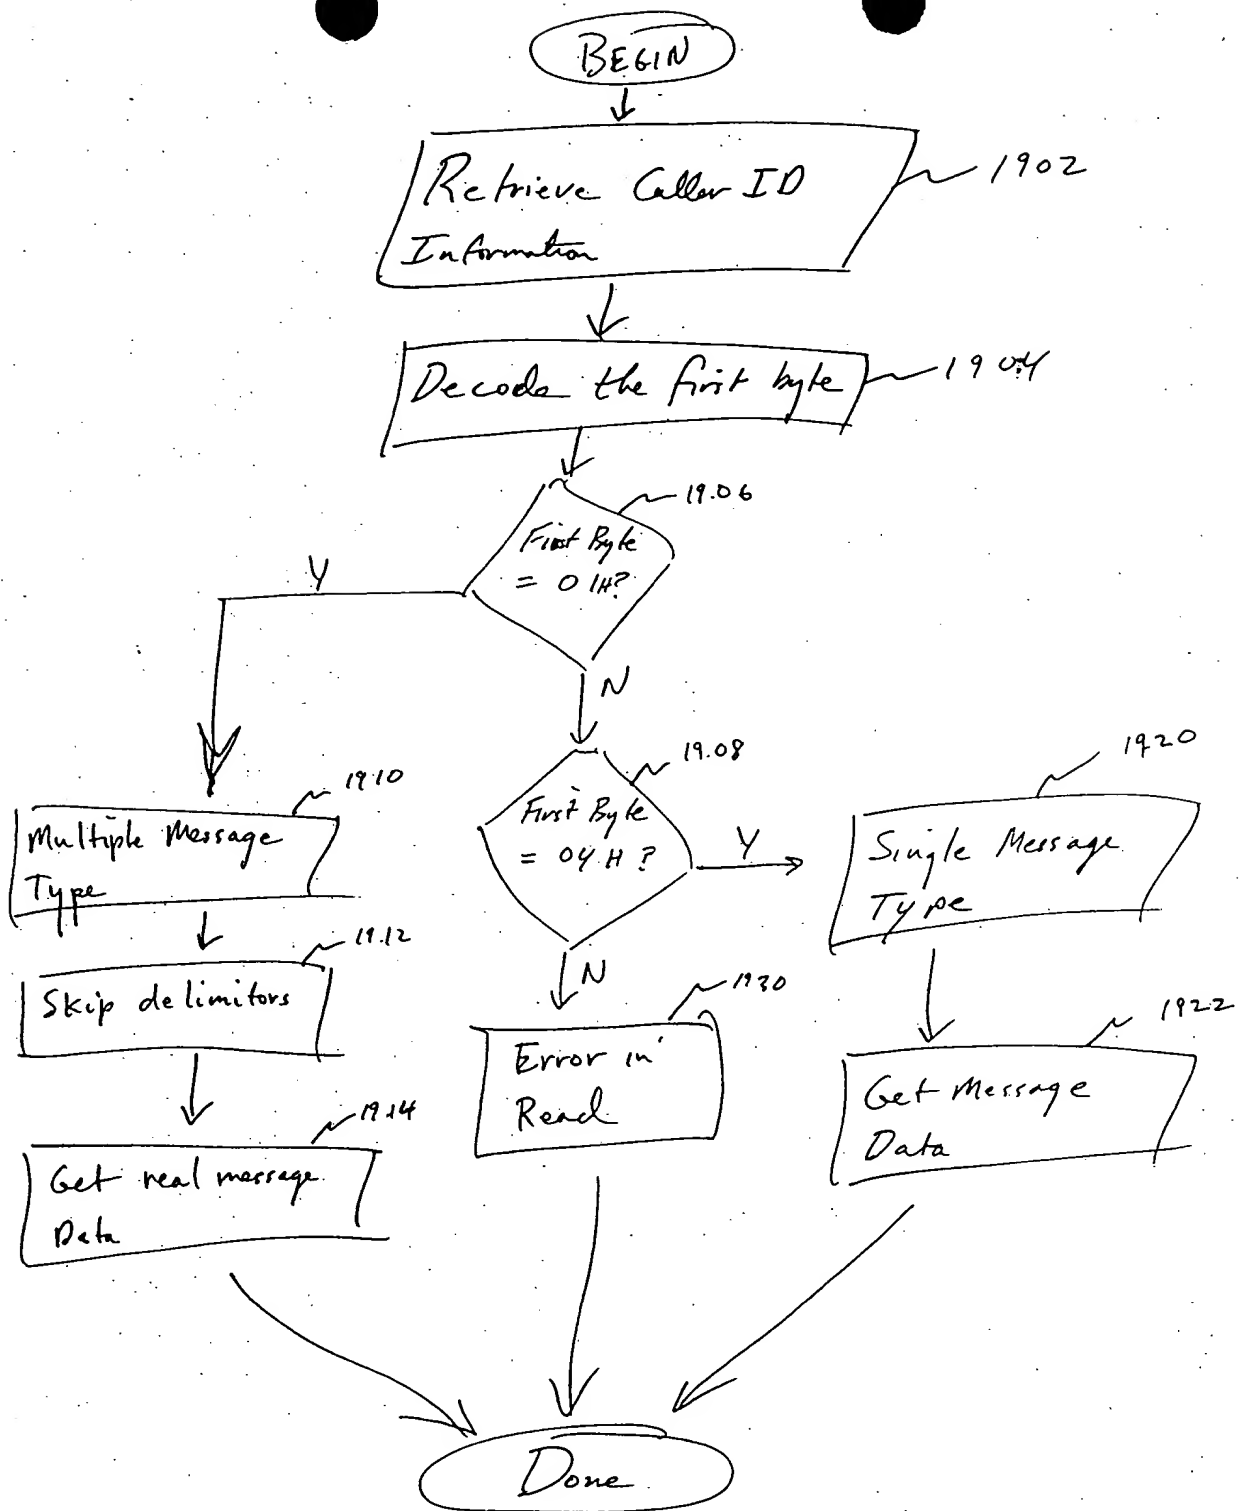 BEGIN
Retrieve Caller ID
Information
1902
Decode the first byte
1904
1906
First Byte
= 01H?
Y
N
1908
First Byte
= 04H?
Y
N
1910
Multiple Message
Type
1912
Skip delimitors
1914
Get real message
Data
1930
Error in
Read
1920
Single Message
Type
1922
Get Message
Data
Done